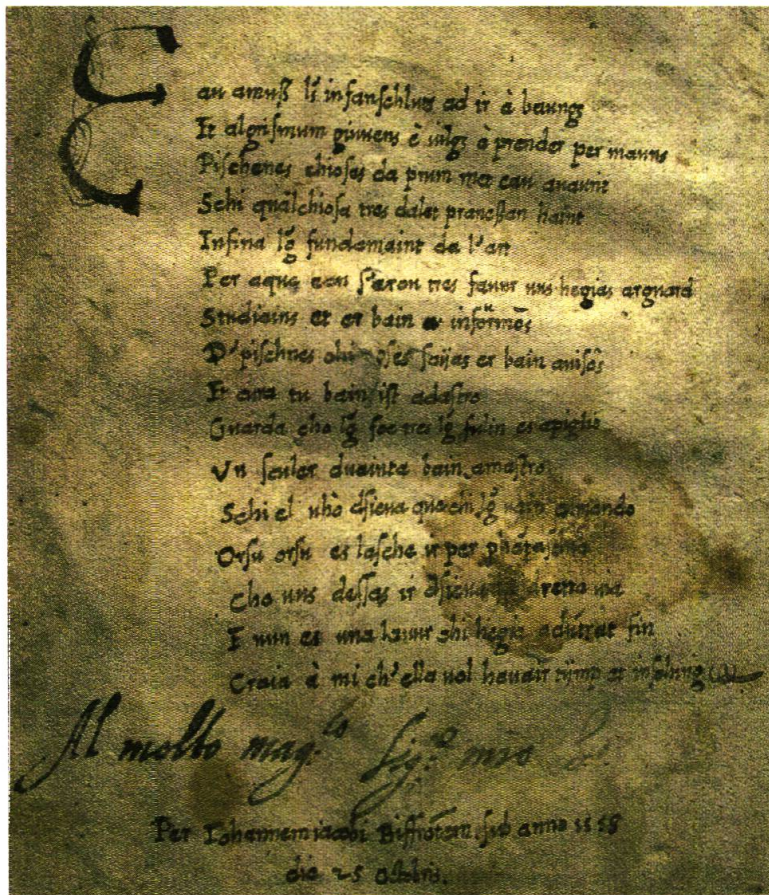 Eau amuß lg infanschluns ad ir à baungs
Et algrismum giuvens è uilgs à prender per mauns
Pischenes chioses da prum mer eau auaunt
Schi quælchiosa tres dalet haun
Infina lg fundamaint da l'art
Per aque eau tres fauur uus hegias arguard
Studiauns et er bain informôs
D'pischnes chioses saijas er bain auisôs
Et cura tu bain ist adastro
Guarda cho lg foe tres lg fulin es apiglio
Un sculer duainta bain amastro
Schi el uho dsieua que chi lg uain amando
Orsu orsu es lascha ir per phantasia
Cho uus dessas ir dsieua la dretta uia
E nun es una lauur chi hegia adütrat fin
Craia à mi ch'ella uol hauair tijmp et insching
Al molto mag.co Sig.or mio
Per Iohannem iacobi Biffrotem sub anno 1558
die 25 octobris.